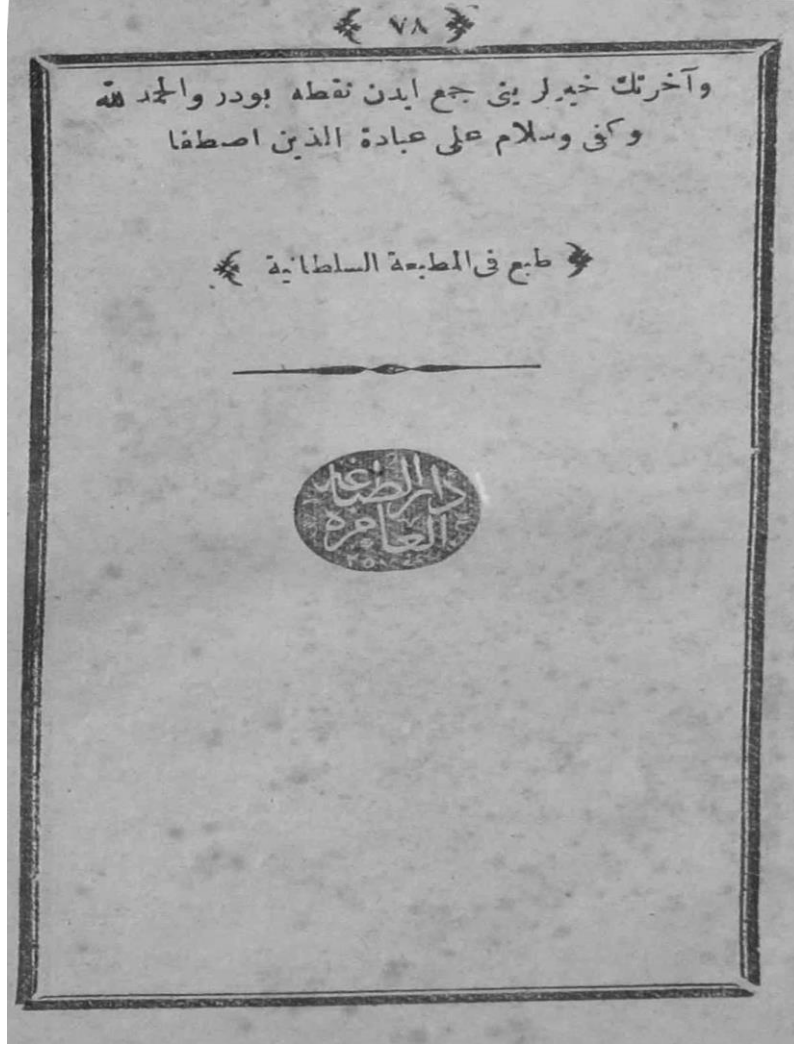 ﴿ ٧٨ ﴾
وآخرتك خيرلرينى جمع ايدن نقطه بودر والحمد لله
وكفى وسلام على عبادة الذين اصطفا
﴿ طبع فى المطبعة السلطانية ﴾
دار الطباعه
العامره